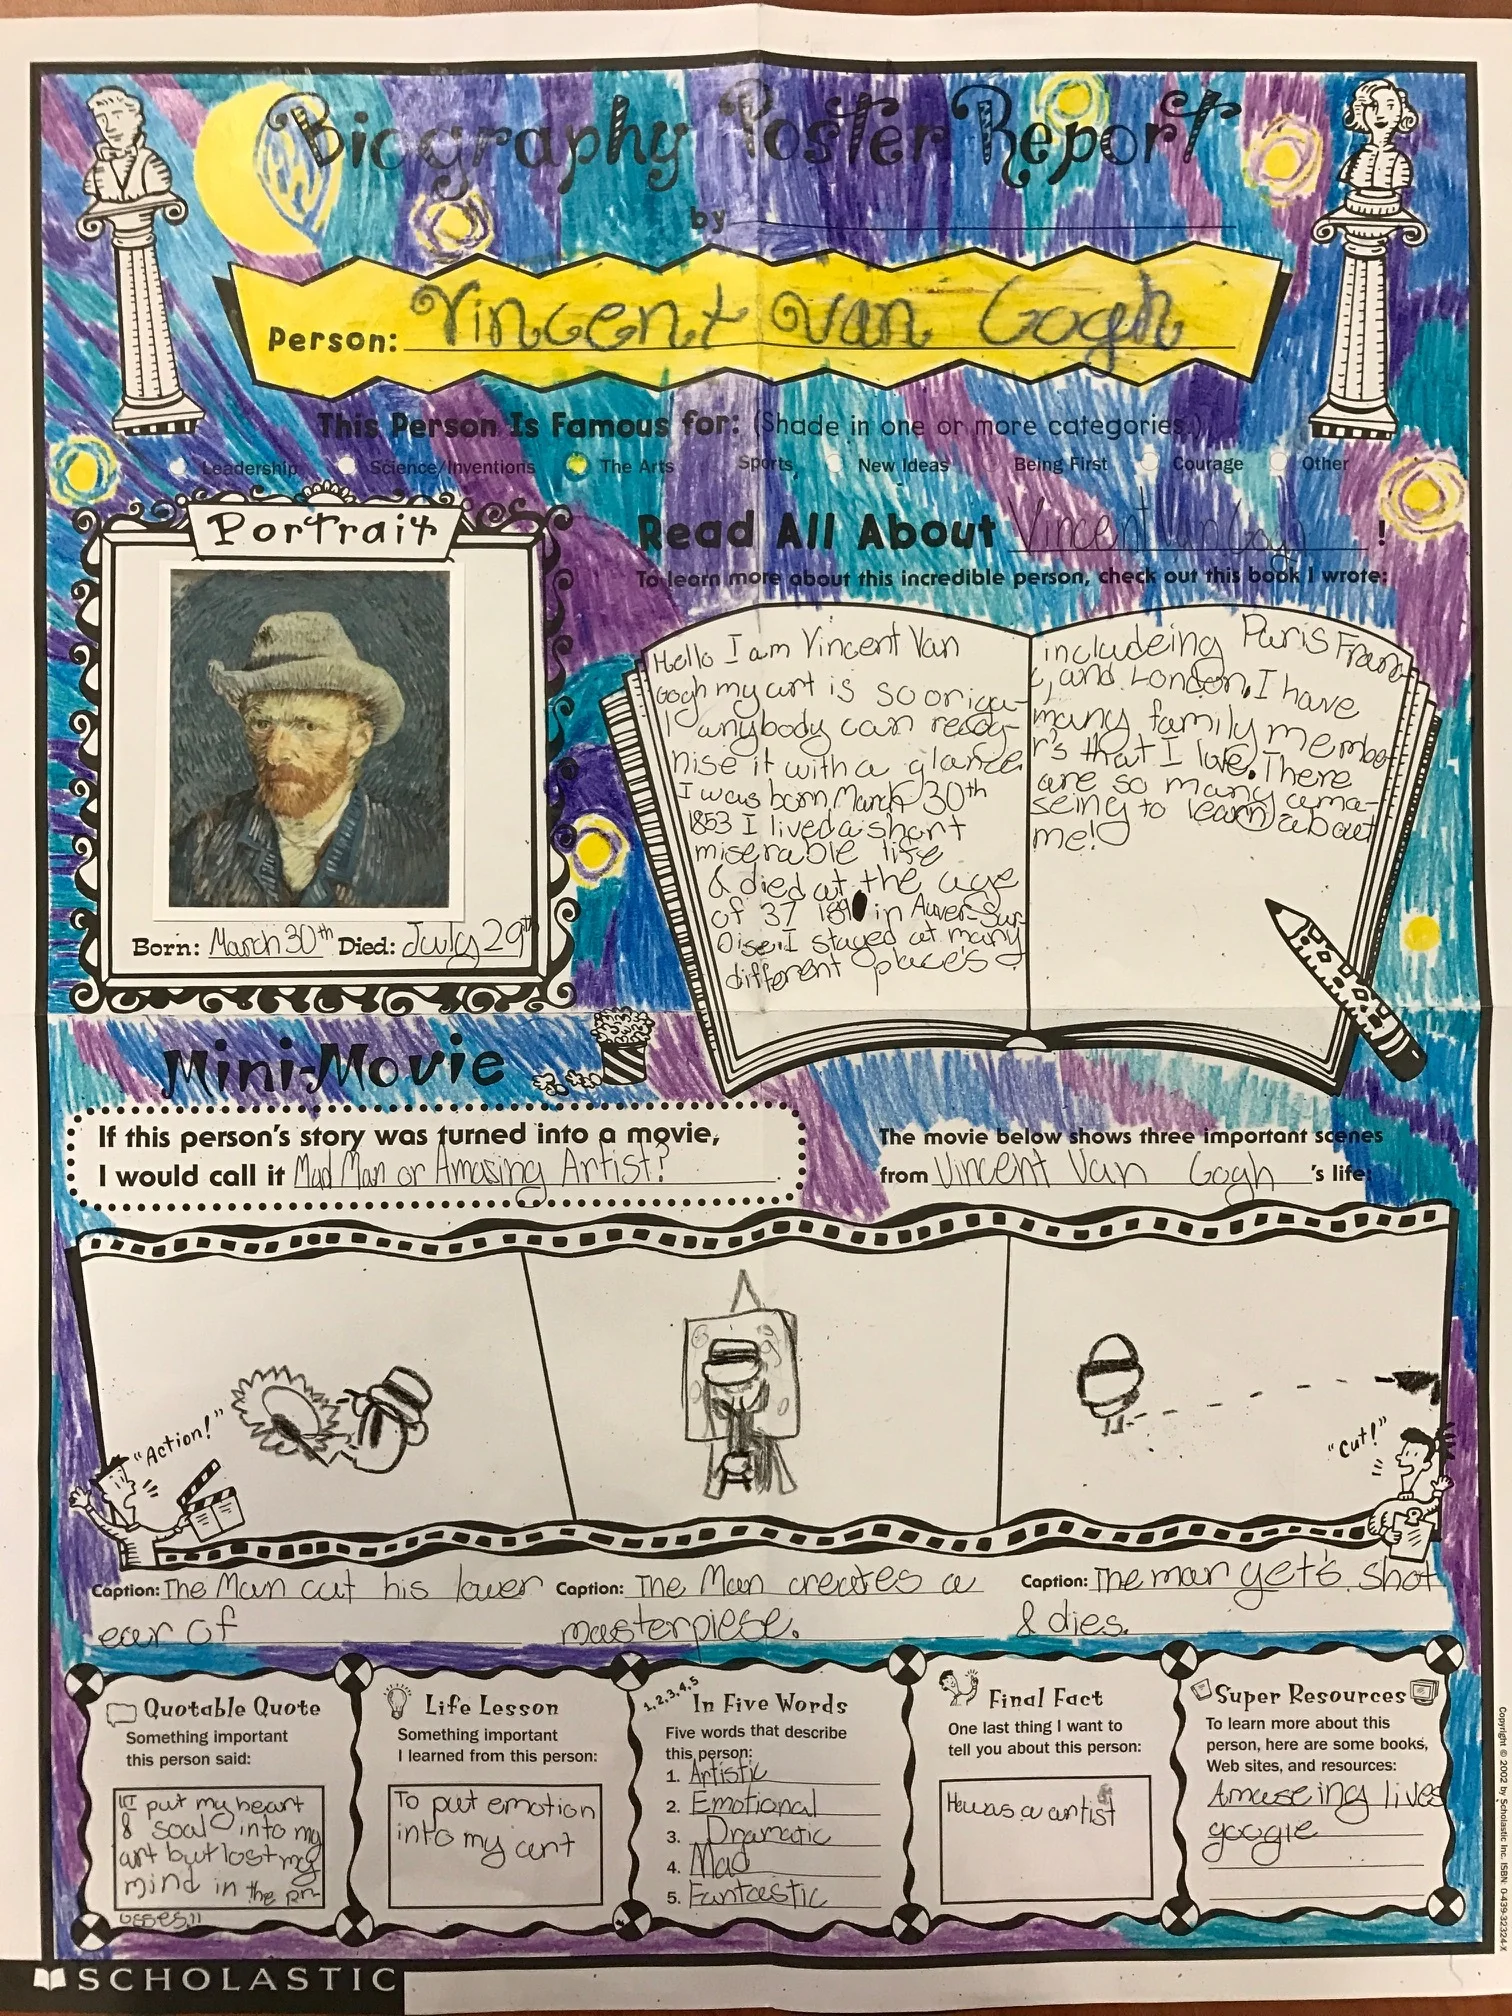 Biography Poster Report
by
Person: Vincent Van Gogh
This Person Is Famous for: (Shade in one or more categories.)
Leadership Science/Inventions The Arts Sports New Ideas Being First Courage Other
Portrait
Born: March 30th Died: July 29th
Read All About Vincent Van Gogh !
To learn more about this incredible person, check out this book I wrote:
Hello I am Vincent Van
Gogh my art is so origa-
l anybody can recog-
nise it with a glance
I was born March 30th
1853 I lived a short
miserable life
& died at the age
of 37 1890 in Auver-Sur-
Oise. I stayed at many
different places
includeing Paris Fran
c, and London. I have
many family membe
r's that I love. There
are so many ama-
seing to learn about
me!
Mini-Movie
If this person's story was turned into a movie,
I would call it Mad Man or Amasing Artist? .
The movie below shows three important scenes
from Vincent Van Gogh 's life:
"Action!"
"Cut!"
Caption: The Man cut his lower
ear of
Caption: The Man creates a
masterpiese.
Caption: The man get's shot
& dies.
Quotable Quote
Something important
this person said:
I put my heart
& soal into my
art but lost my
mind in the pr-
osses."
Life Lesson
Something important
I learned from this person:
To put emotion
into my art
1,2,3,4,5
In Five Words
Five words that describe
this person:
1. Artistic
2. Emotional
3. Dramatic
4. Mad
5. Funtastic
Final Fact
One last thing I want to
tell you about this person:
He was a artist
Super Resources
To learn more about this
person, here are some books,
Web sites, and resources:
Amaseing lives
google
SCHOLASTIC
Copyright © 2002 by Scholastic Inc. ISBN: 0-439-32324-X